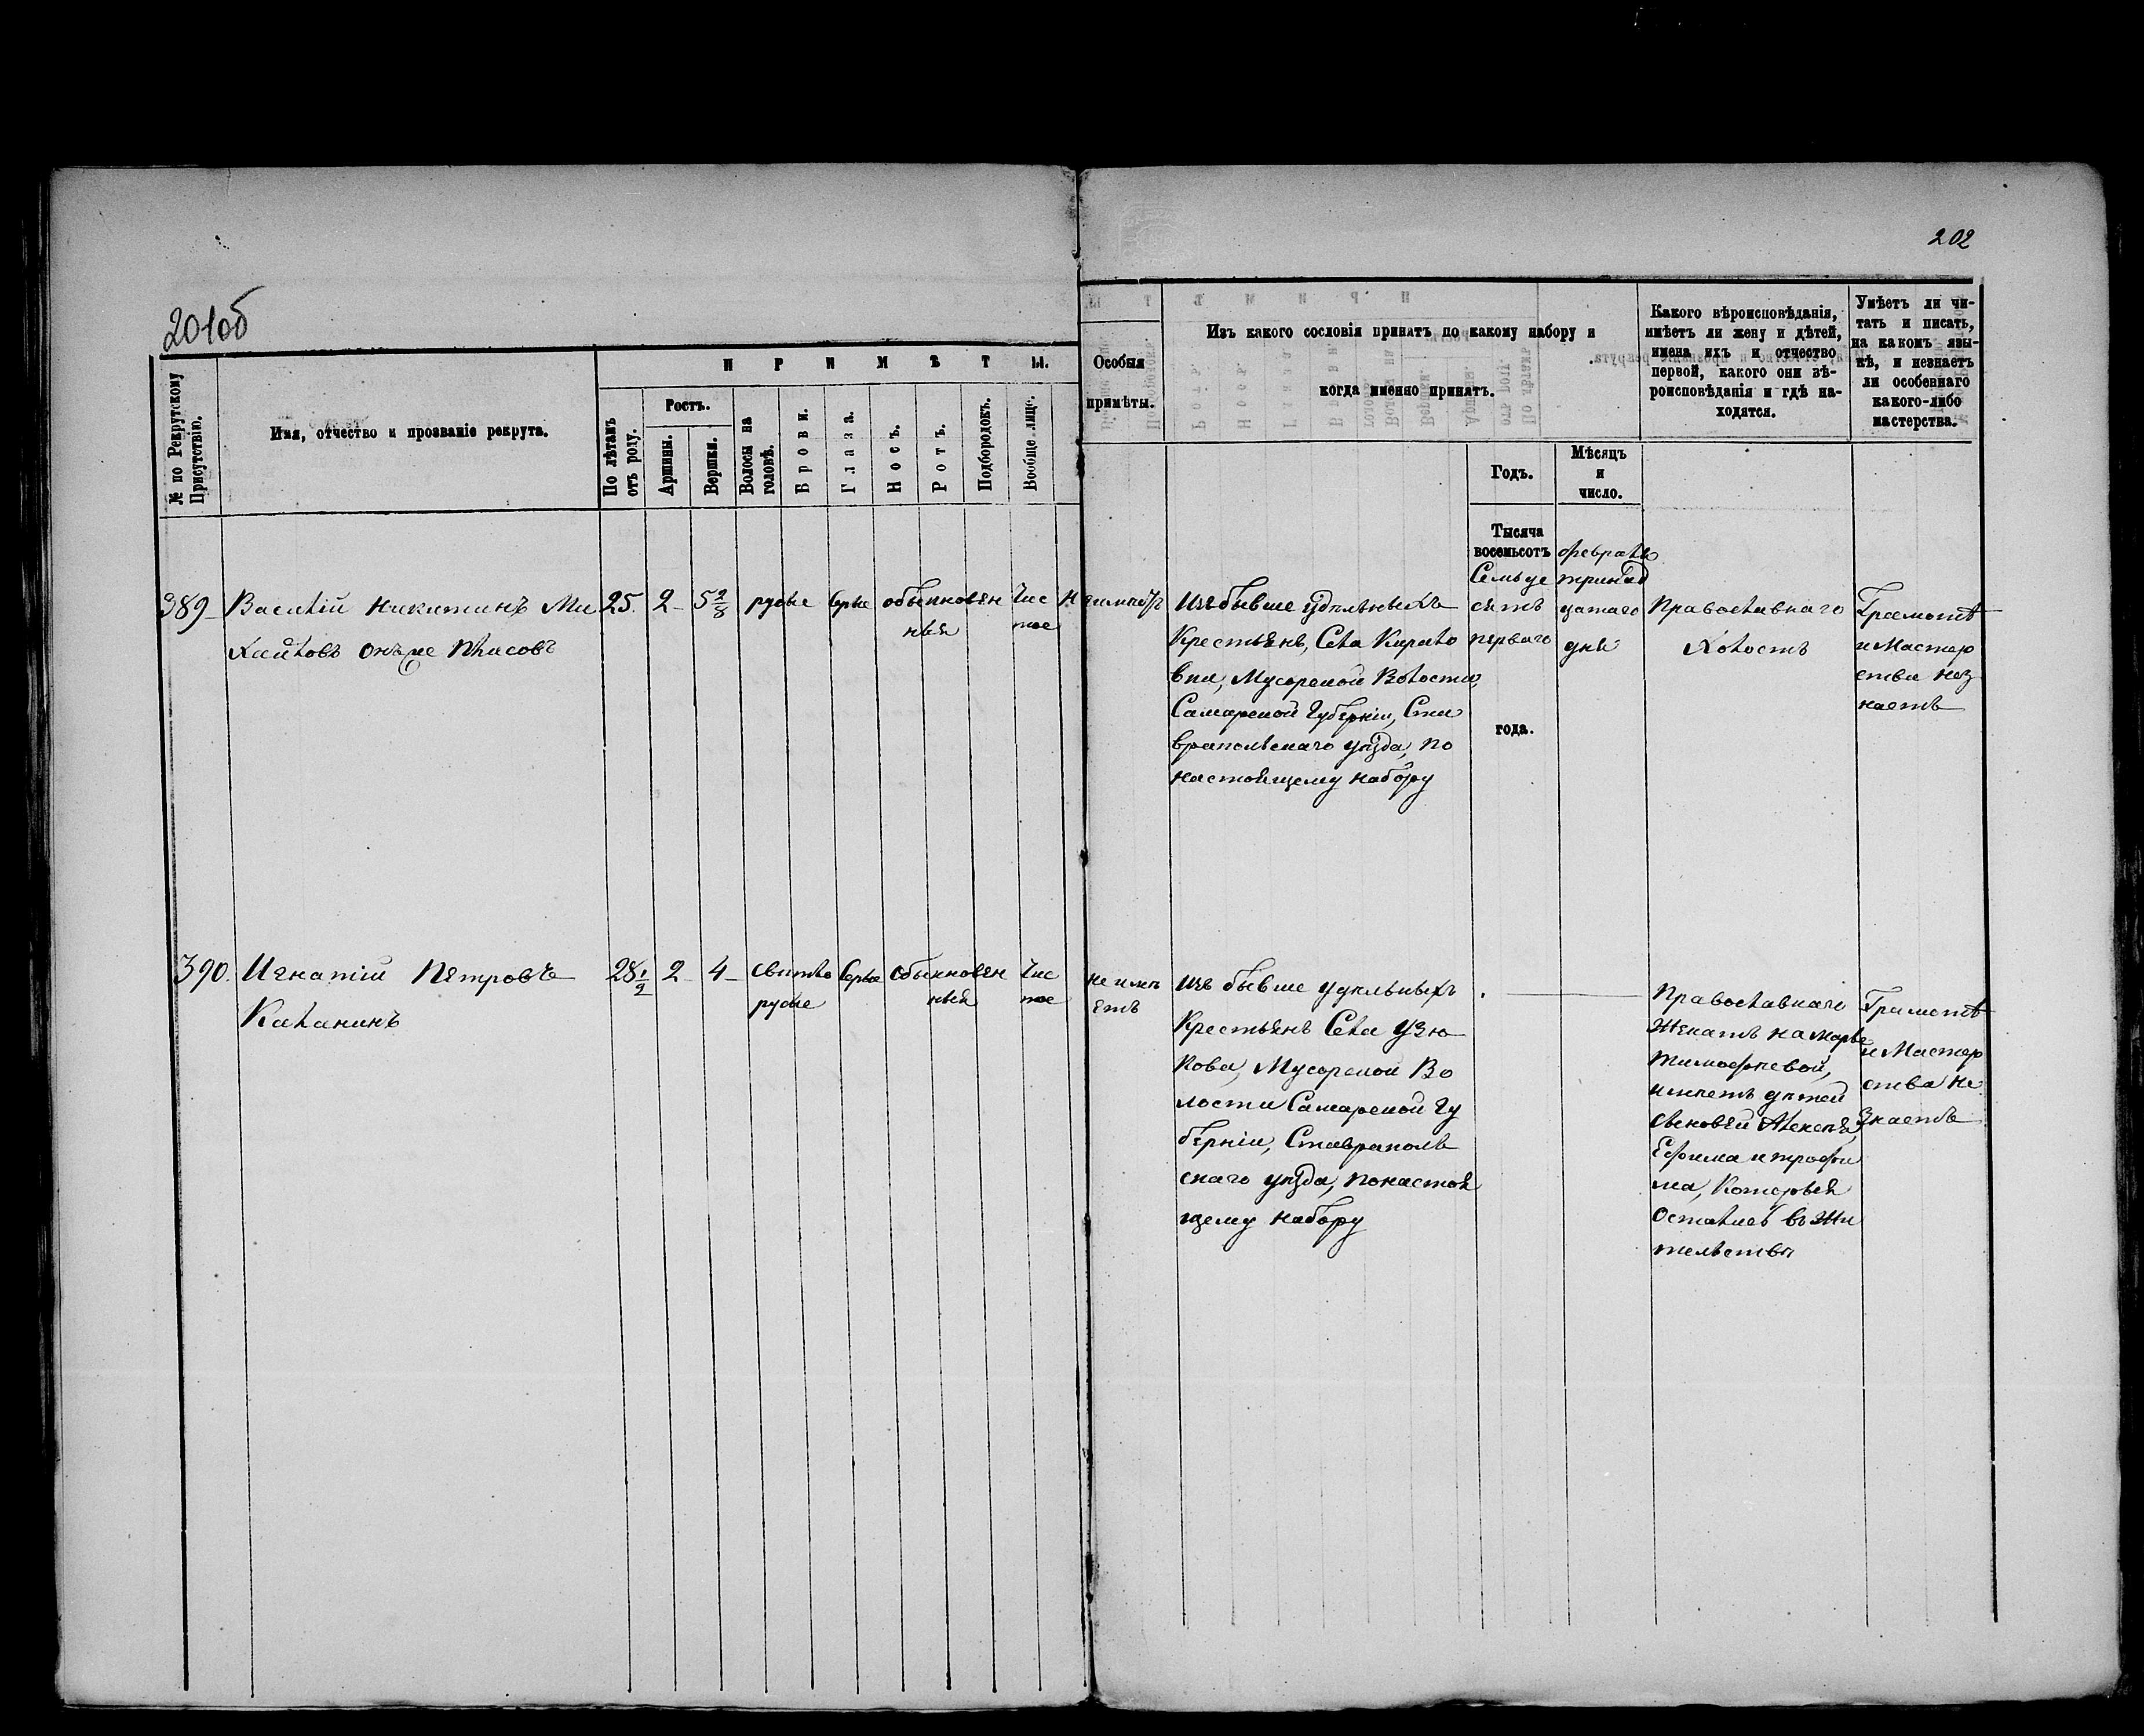 202
201об
№ по Рекрутскому Присутствію.
Имя, отчество и прозваніе рекрута.
ПРИМѢТЫ.
По лѣтамъ отъ роду.
Ростъ.
Аршины.
Вершки.
Волосы на головѣ.
Брови.
Глаза.
Носъ.
Ротъ.
Подбородокъ.
Вообще лице.
Особыя
примѣты.
Изъ какого сословія принятъ по какому набору и
когда именно принятъ.
Годъ.
Мѣсяцъ
и
число.
Какого вѣроисповѣданія,
имѣетъ ли жену и дѣтей,
имена ихъ и отчество
первой, какого они вѣ-
роисповѣданія и гдѣ на-
ходятся.
Умѣетъ ли чи-
тать и писать,
на какомъ язы-
кѣ, и незнаетъ
ли особеннаго
какого-либо
мастерства.
389 Василій Никитинъ Ми
хайловъ онъже Власовъ
25. 2 5 2/8 русые серые обыкновен
ныя
Чис
тое
Изъ бывше удѣльныхъ
Крестьянъ, Села Кирило
вки, Мусорской Волости,
Самарской Губерніи, Ста
врапольскаго уѣзда, по
настоящему набору
Тысяча
восемьсотъ
Семьде
сятъ
перваго
года.
февраля
тринад
цатаго
дня
Православнаго
Холостъ
Грамотѣ
и Мастер
ства нез
наетъ
390. Игнатій Петровъ
Каланинъ
28 1/2 2 4 Свитло
русые
Серые Обыкновен
ныя
Чис
тое
не имѣ
етъ
Изъ бывше удѣльныхъ
Крестьянъ Села Узю
кова, Мусорской Во
лости Самарской Гу
берніи, Ставраполь
скаго уѣзда, понастоя
щему набору
Православнаго
Женатъ на Марье
Тимофѣевой,
имѣетъ дѣтей
сыновей Алексѣя,
Ефима и трофи
ма, Которыя
Остались въ Жи
тельствѣ
Грамотѣ
и Мастер
ства не
Знаетъ